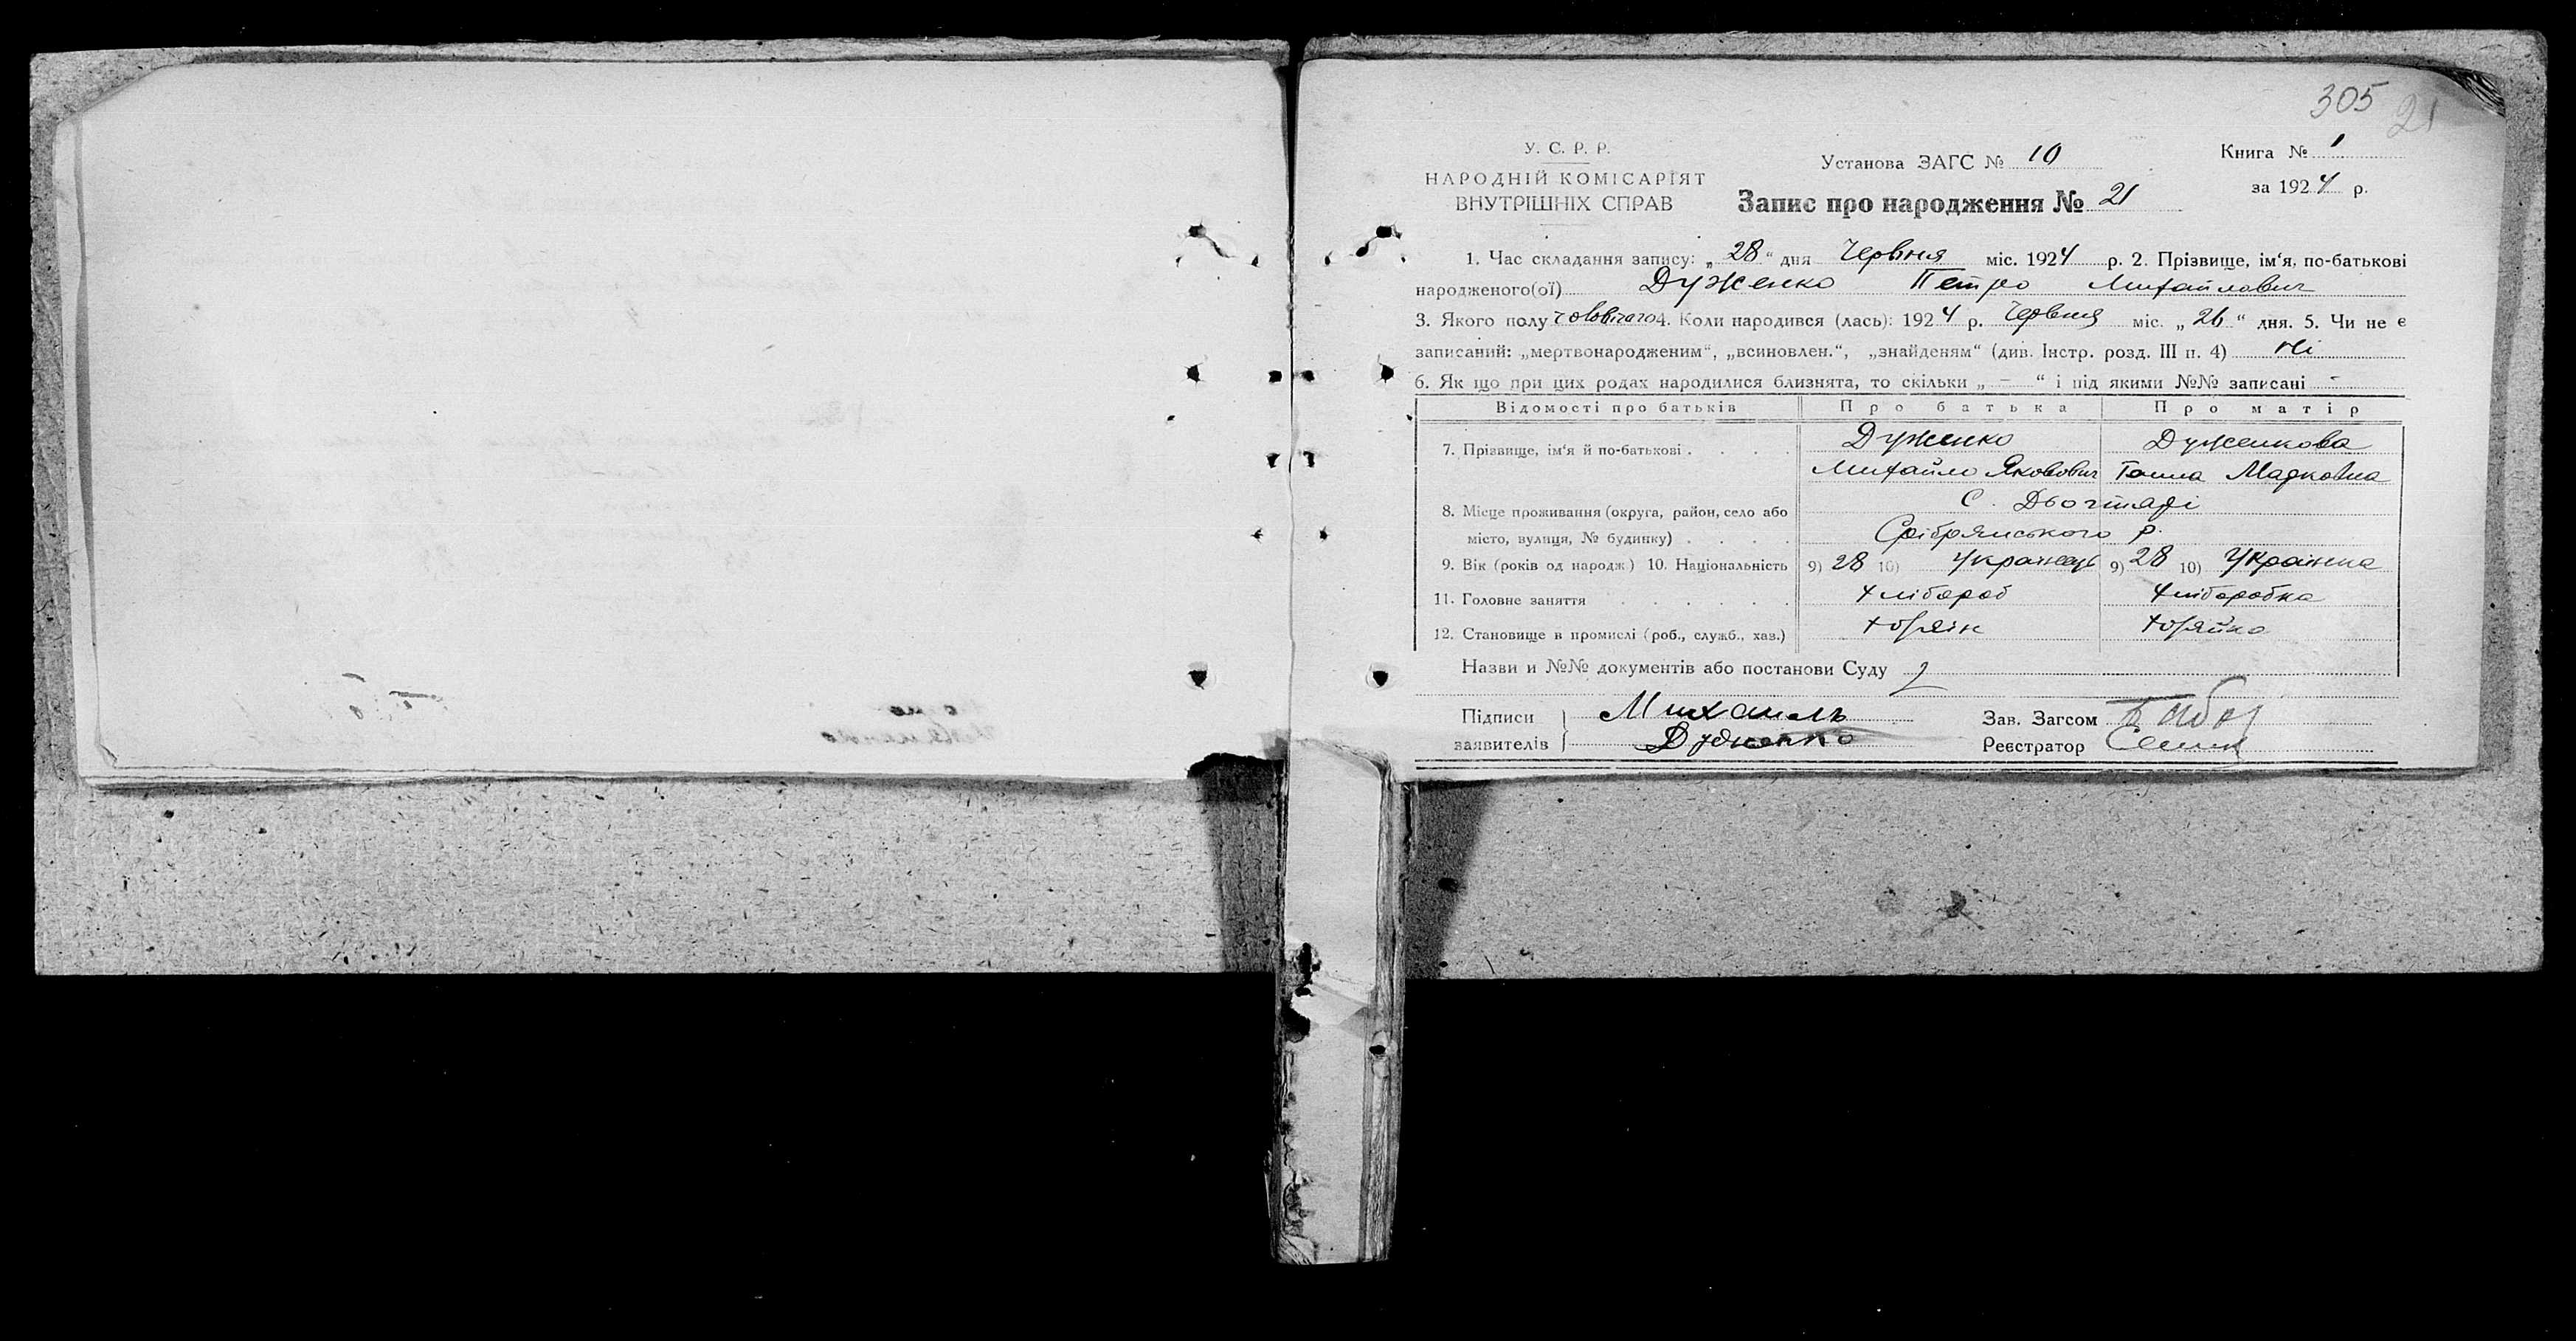 305 21
У. С. Р. Р.
НАРОДНІЙ КОМІСАРІЯТ
ВНУТРІШНІХ СПРАВ
Установа ЗАГС № 10
Книга № 1
за 1924 р.
Запис про народження № 21
1. Час складання запису: „28“ дня Червня міс. 1924 р. 2. Прізвище, ім‘я, по-батькові
народженого(ої) Дуженко Петро Михайлович
3. Якого полу чоловічого 4. Коли народився (лась): 1924 р. Червня міс. „26“ дня. 5. Чи не є
записаний: „мертвонародженим“, „всиновлен.“, „знайденям“ (див. Інстр. розд. III п. 4) Ні
6. Як що при цих родах народилися близнята, то скільки „ – “ і під якими №№ записані -
Відомості про батьків Про батька Про матір
7. Прізвище, ім‘я й по-батькові . . . . Дуженко Дуженкова
Михайло Яковович Ганна Марковна
8. Місце проживання (округа, район, село або С. Дьогтярі
місто, вулиця, № будинку) . . . . Срібрянського р.
9. Вік (років од народж) 10. Національність 9) 28 10) Українець 9) 28 10) Українка
11. Головне заняття . . . . . . Хлібороб Хліборобка
12. Становище в промислі (роб., служб., хаз.) Хозяїн Хозяйка
Назви и №№ документів або постанови Суду
Підписи Михаилъ Зав. Загсом
заявителів Дуженко Реєстратор